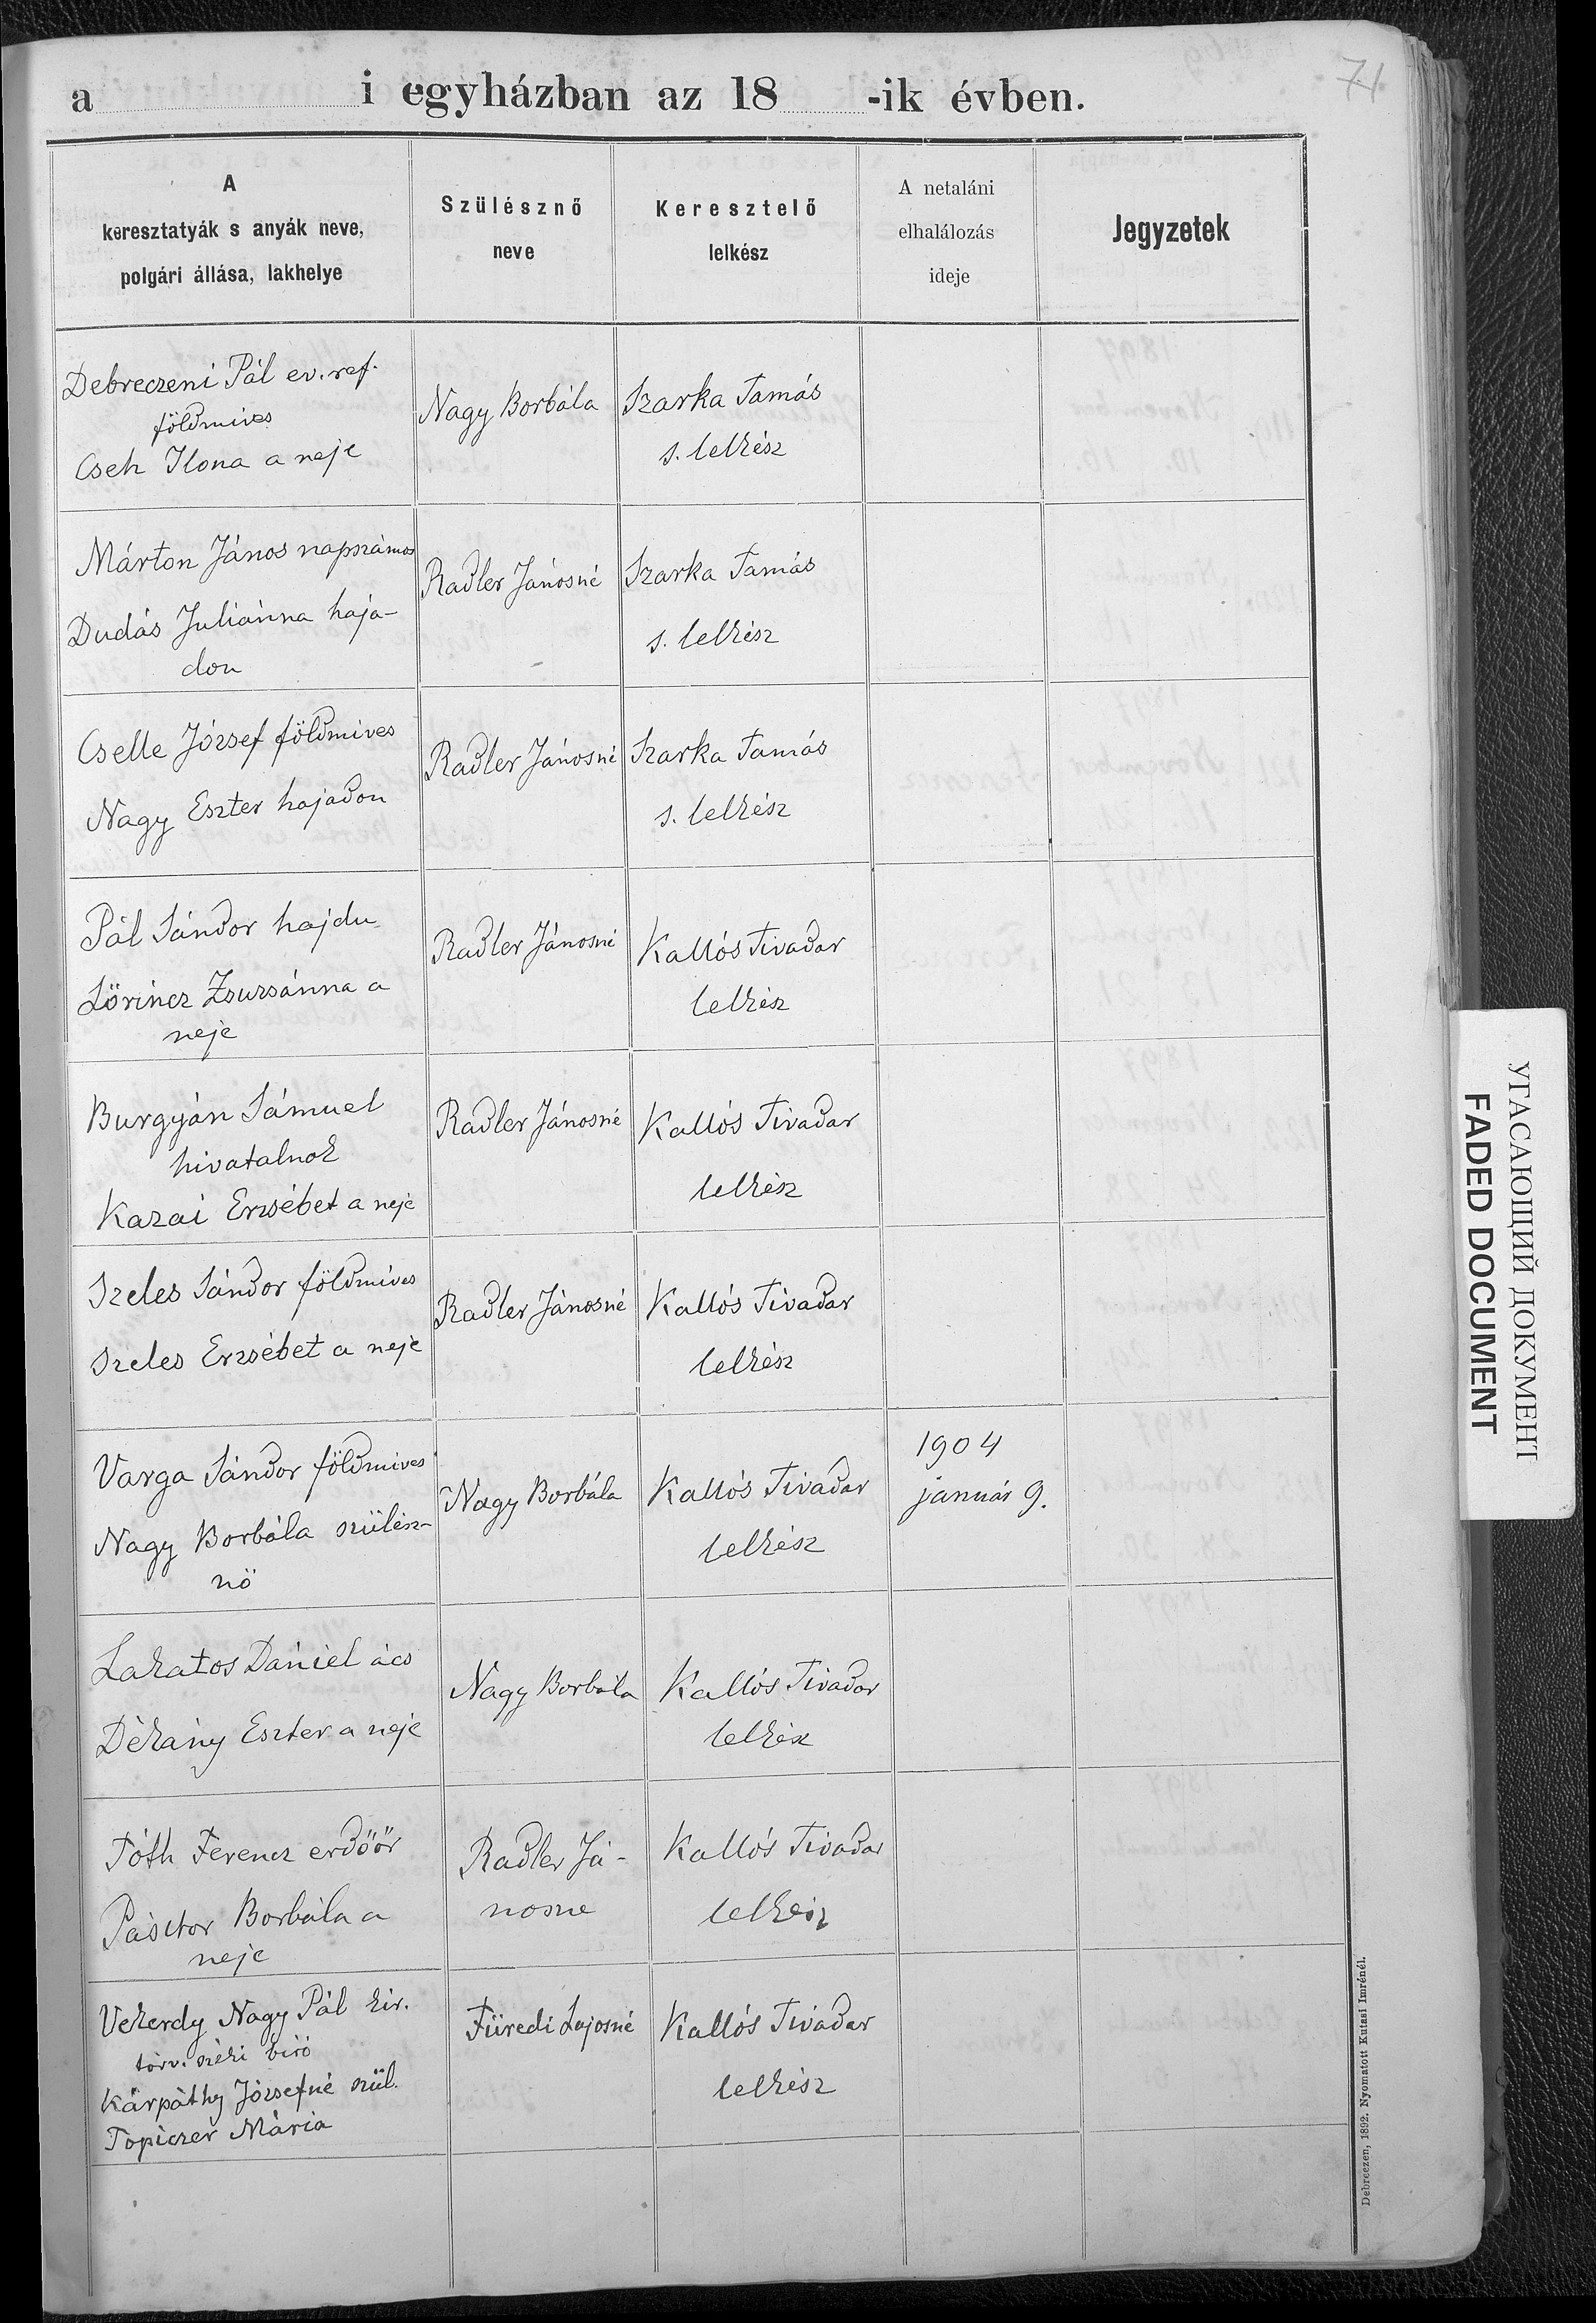 71
a i egyházban az 18 -ik évben.
A
keresztatyák s anyák neve,
polgári állása, lakhelye
Szülésznő
neve
Keresztelő
lelkész
A netaláni
elhalálozás
ideje
Jegyzetek
Debreczeni Pál ev. ref.
földmives
Cseh Ilona a neje
Nagy Borbála
Szarka Tamás
s. lelkész
Márton János napszámos
Dudás Juliánna haja-
don
Radler Jánosné
Szarka Tamás
s. lelkész
Cselle József földmives
Nagy Eszter hajadon
Radler Jánosné
Szarka Tamás
s. lelkész
Pál Sándor hajdu
Lörincz Zsuzsánna a
neje
Radler Jánosné
Kallós Tivadar
lelkész
Burgyán Sámuel
hivatalnok
Kazai Erzsébet a neje
Radler Jánosné
Kallós Tivadar
lelkész
Szeles Sándor földmives
Szeles Erzsébet a neje
Radler Jánosné
Kallós Tivadar
lelkész
Varga Sándor földmives
Nagy Borbála szülész-
nö
Nagy Borbála
Kallós Tivadar
lelkész
1904
január 9.
Lakatos Dániel ács
Dékány Eszter a neje
Nagy Borbála
Kallós Tivadar
lelkész
Tóth Ferencz erdőőr
Pásztor Borbála a
neje
Radler Já-
nosne
Kallós Tivadar
lelkész
Vekerdy Nagy Pál kir.
törv. széki biró
Kárpáthy Józsefné szül.
Topiczer Mária
Füredi Lajosné
Kallós Tivadar
lelkész
Debreczen, 1892. Nyomatott Kutasi Imrénél.
УГАСАЮЩИЙ ДОКУМЕНТ
FADED DOCUMENT